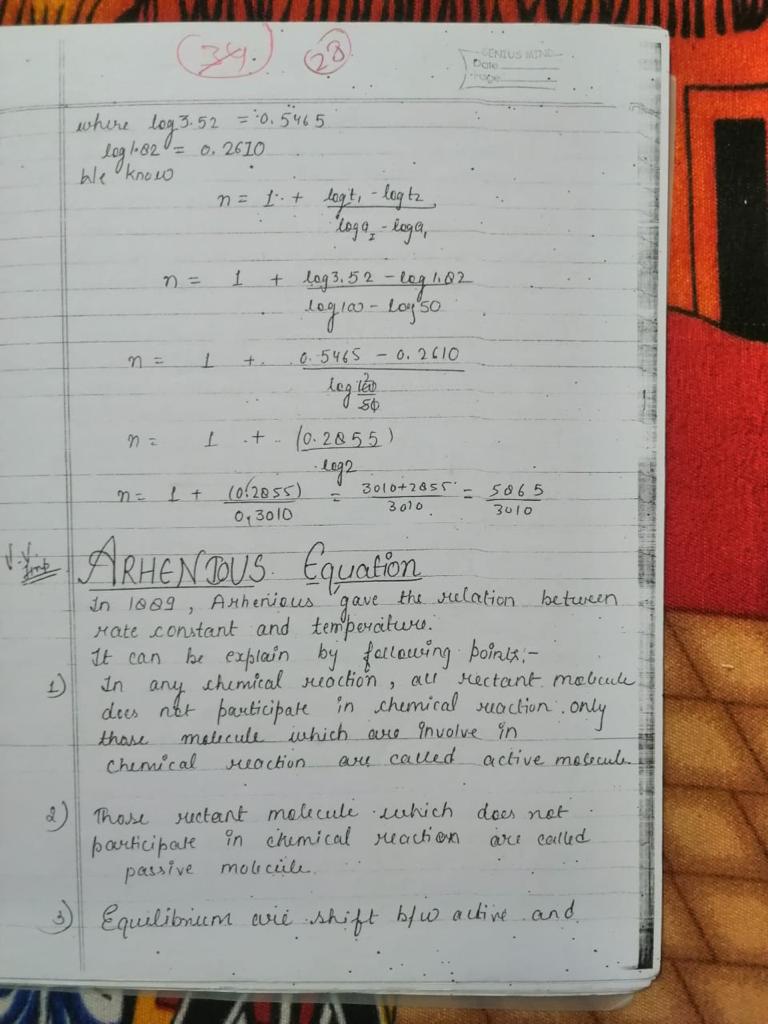 34. 28
GENIUS MIND
Date
Page
where log 3.52 = 0.5465
log 1.82 = 0.2610
We know
n = 1 + logt₁ - logt₂
loga₂ - loga₁
n = 1 + log 3.52 - log 1.82
log 100 - log 50
n = 1 + 0.5465 - 0.2610
log 100 2
50
n = 1 + (0.2855)
log2
n = 1 + (0.2855) = 3010+2855 = 5865
0.3010 3010 3010
V.V. Imp ARHENIOUS Equation
In 1889, Arhenious gave the relation between
rate constant and temperature.
It can be explain by following points:-
1) In any chemical reoction, all rectant molecule
does not participate in chemical reaction. only
those molecule which are involve in
chemical reaction are called active molecule.
2) Those rectant molecule which does not
participate in chemical reaction are called
passive molecule.
3) Equilibrium are shift b/w active and